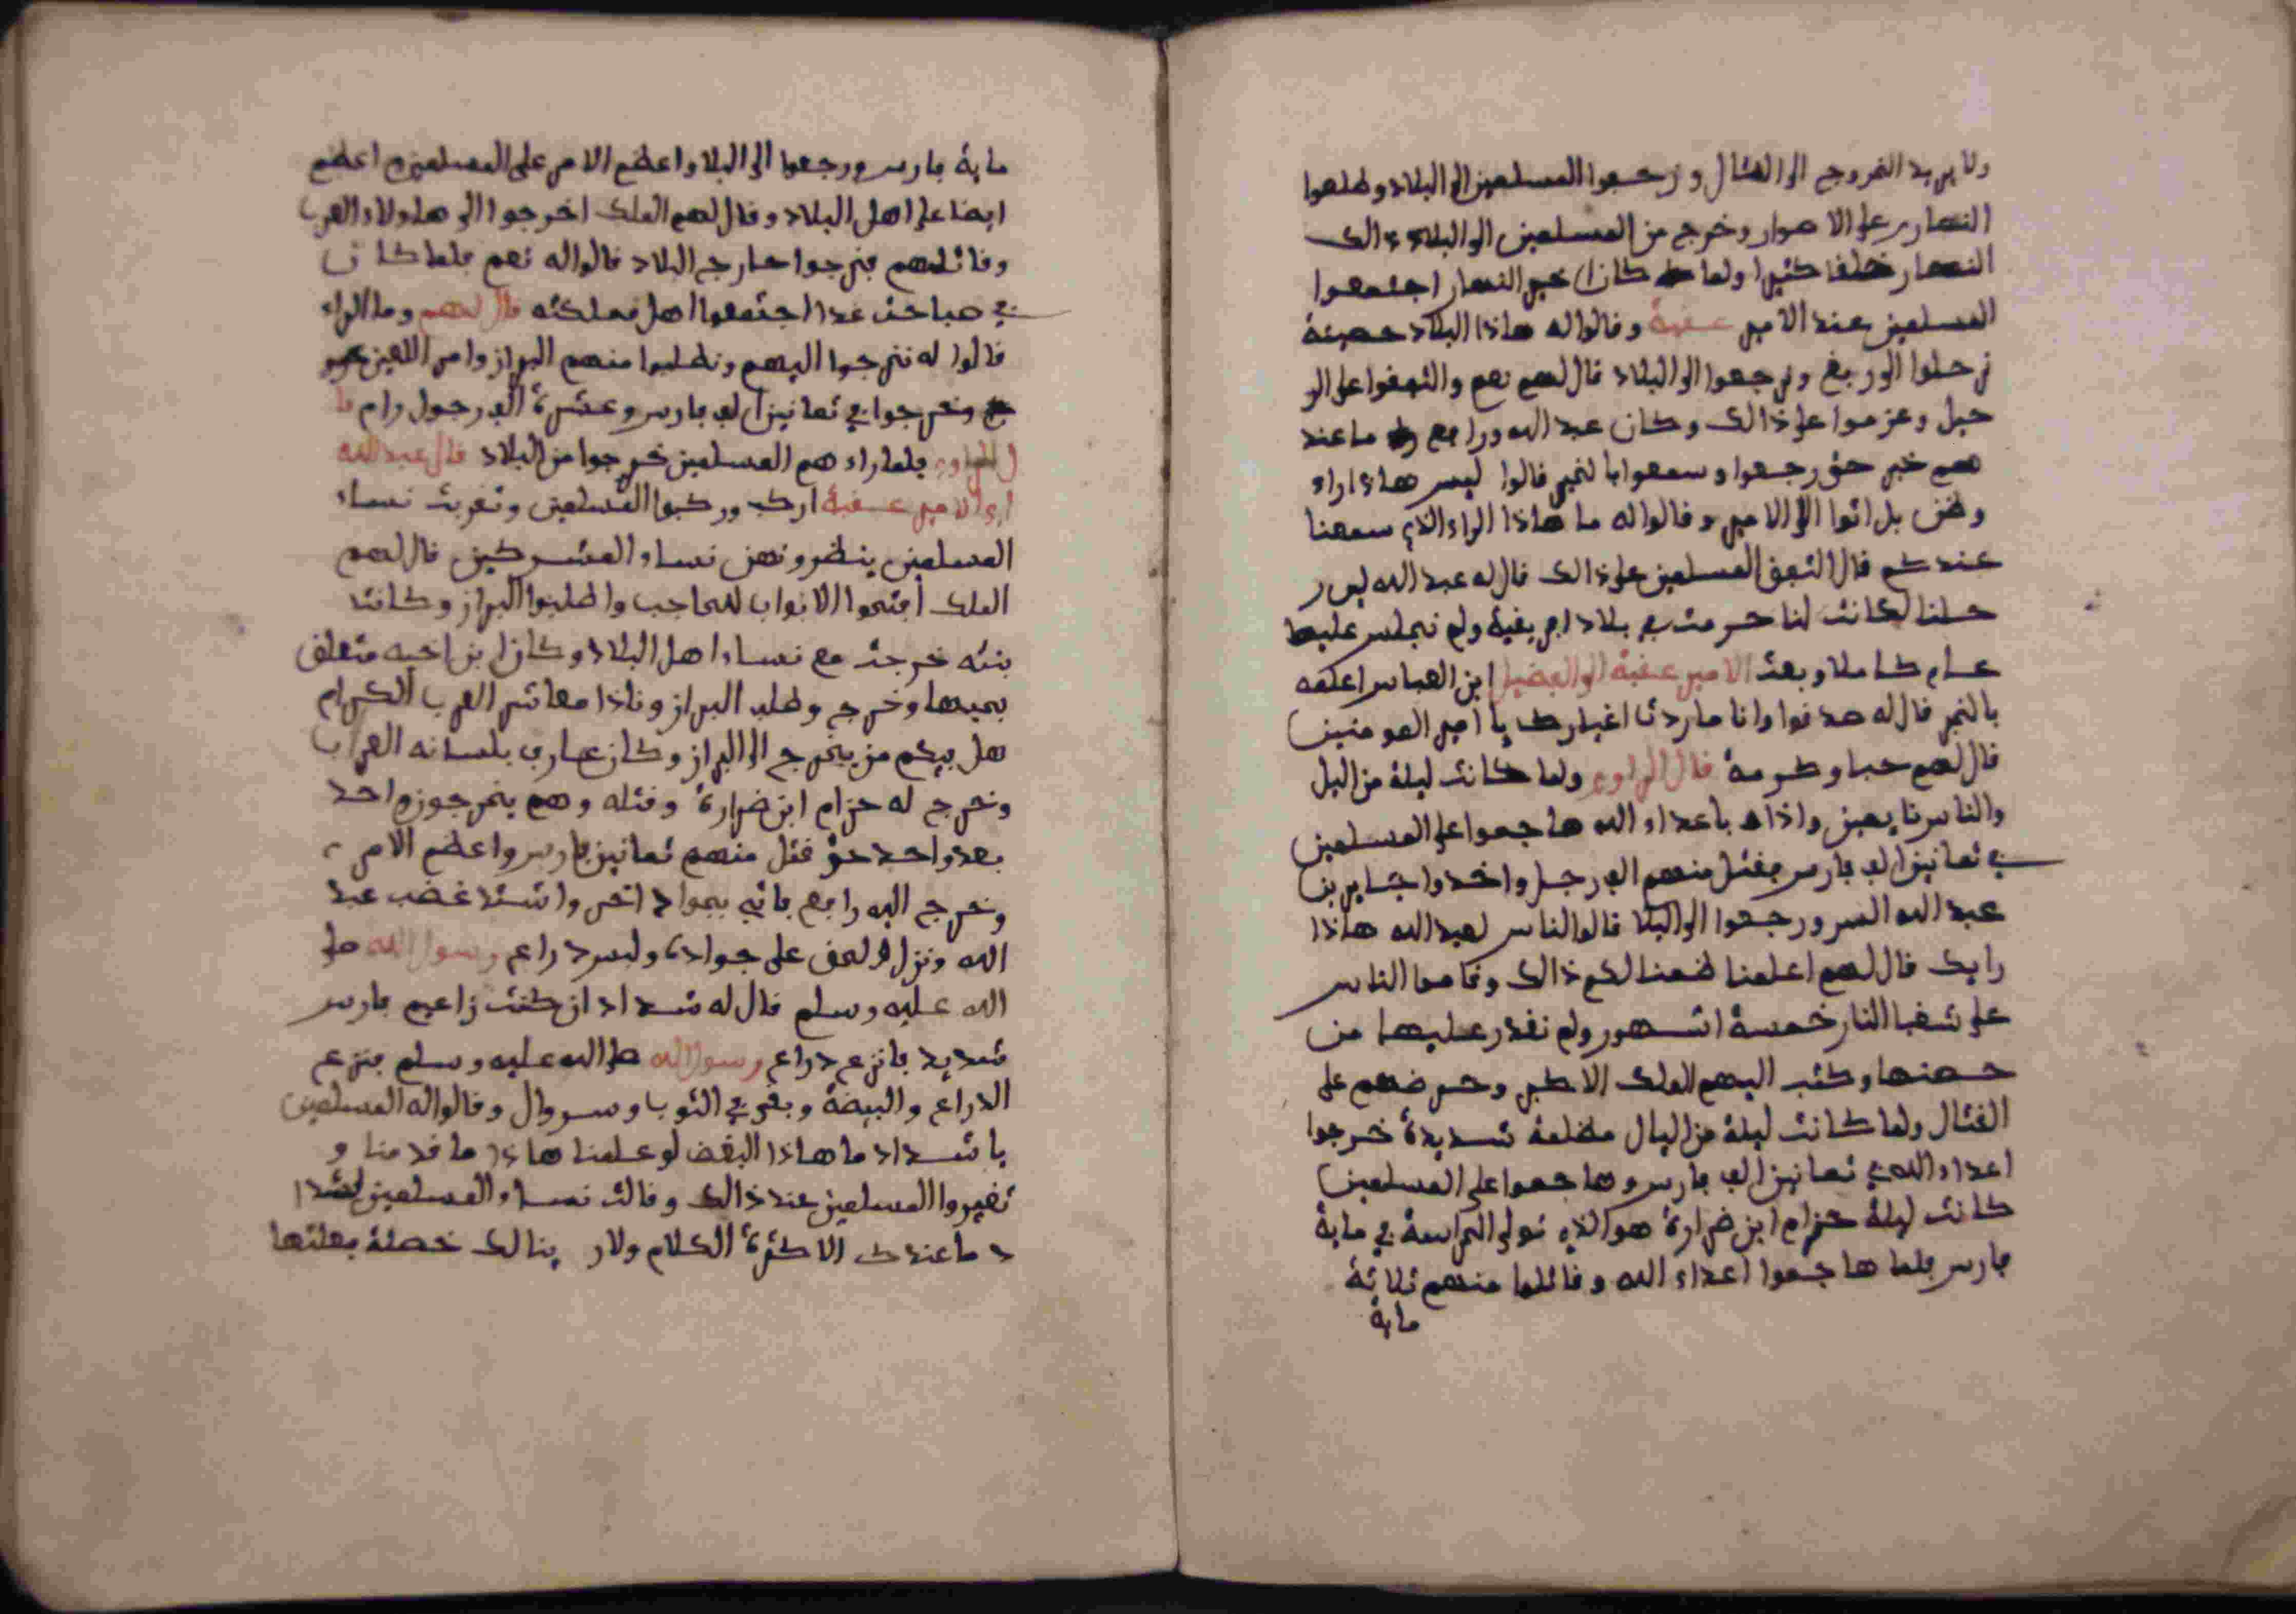 ولا يريد الخروج الى القتال ورجعوا المسلمين الى البلاد وطلعوا
النصارى على الاصوار وخرج من المسلمين الى البلاد ذالك
النهار خلفا كثيرا ولما كان اخير النهار اجتمعوا
المسلمين عند الامير عقبة وقالوا له هاذا البلاد حصينة
نرحلوا الى ونرجعوا الى البلاد قال لهم نعم واتفقوا على الر
حيل وعزموا على ذالك وكان عبد الله ورافع ما عند
هم خبر حتى رجعوا وسمعوا بالخبر قالوا ليس هاذا راء
وطن بل اتوا الى الامير وقالوا له ما هاذا الراء الذي سمعنا
عندكم قال اتفق المسلمين على ذالك قال له عبد الله لو ر
حلنا لكانت لنا حرمت في بلاد افريقية ولم نجلس عليها
عام كاملا وبعث الامير عقبة الى الفضيل ابن العباس اعلمه
بالخبر قال له صدقوا وانا ما ردت اغيارك يا امير المومنين
قال لهم حبا وكرمة قال الراوي ولما كانت ليلة من اليل
والناس نايمين واذا باعداء الله هاجموا على المسلمين
في ثمانين الف فارس فقتل منهم الف رجل واخذوا جابر بن
عبد الله اسر ورجعوا الى البلا قالوا الناس لعبد الله هاذا
رايك قال لهم اعلمنا ذالك وقاموا الناس
على النار خمسة اشهور ولم نقدر عليها من
حصنها وكتب اليهم الملك الاكبر وحرضهم على
القتال ولما كانت ليلة من اليال مظلمة شديدة خرجوا
اعداء الله في ثمانين الف فارس وهاجموا على المسلمين
كانت ليلة حزام ابن ضرارة هو الذي تولى الحراسة في ماية
فارس فلما هاجموا اعداء الله وقاتلوا منهم ثلاثة
ماية
ماية فارس ورجعوا الى البلاد واعظم الامر على المسلمين واعظم
ايضا على اهل البلاد وقال لهم الملك اخرجوا الى هاولاء العرب
وقاتلهم فخرجوا خارج البلاد قالوا له نعم فلما كان
في صباحت غدا اجتمعوا اهل مملكته قال لهم وما الراء
قالوا له نخرجوا اليهم ونطلبوا منهم البراز وامر اللعين
وخرجوا في ثمانين الف فارس وعشرة الف رجول رام قا
ل الراوي فلما راء هم المسلمين خرجوا من البلاد قال عبد الله
اي الامير عقبة اركب وركبوا المسلمين وتقربت نساء
المسلمين ينظرو نهن نساء المشركين قال لهم
الملك افتحوا الابواب للحاجب واطلبوا البراز وكانت
بنته خرجت مع نساء اهل البلاد وكان ابن اخيه متعلق
بحبها وخرج وطلب البراز ونادا معاشر العرب الكرام
هل فيكم من يخرج الى البراز وكان عارف بلسانه العراب
وخرج له حزام ابن ضرارة وقتله وهم يخرجوزه احد
بعد واحد حتى قتل منهم ثمانين فارس واعظم الامر
وخرج اليه رافع فاتي بجواد اخر واشتد غضب عبد
الله ونزل ولحق على جواده ولبس دراع رسول الله صلى
الله عليه وسلم قال له شداد ان كنت زاعيم فارس
شديد فانزع دراع رسول الله صلى الله عليه وسلم فنزع
الدراع والبيضة وبقي في الثوب وسروال وقالوا له المسلمين
يا شداد ما هاذا البغض لو علمنا هاذا ما قدمنا و
تغيروا المسلمين عند ذالك وقالت نساء المسلمين لشدا
د ما عندك الا كثرة الكلام ولار ينا لك خصلة فعلتها